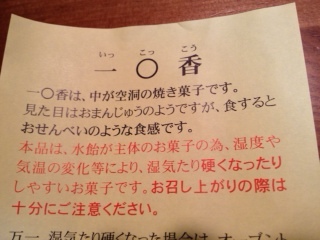 いっ こっ こう
一〇香
一〇香は、中が空洞の焼き菓子です。
見た目はおまんじゅうのようですが、食すると
おせんべいのような食感です。
本品は、水飴が主体のお菓子の為、湿度や
気温の変化等により、湿気たり硬くなったり
しやすいお菓子です。お召し上がりの際は
十分にご注意ください。
万一、湿気たり硬くなった場合は、オーブント